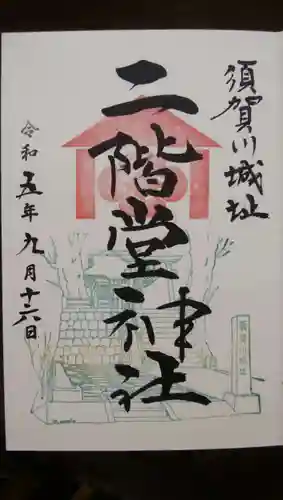 須賀川城址
二階堂神社
令和五年九月十六日